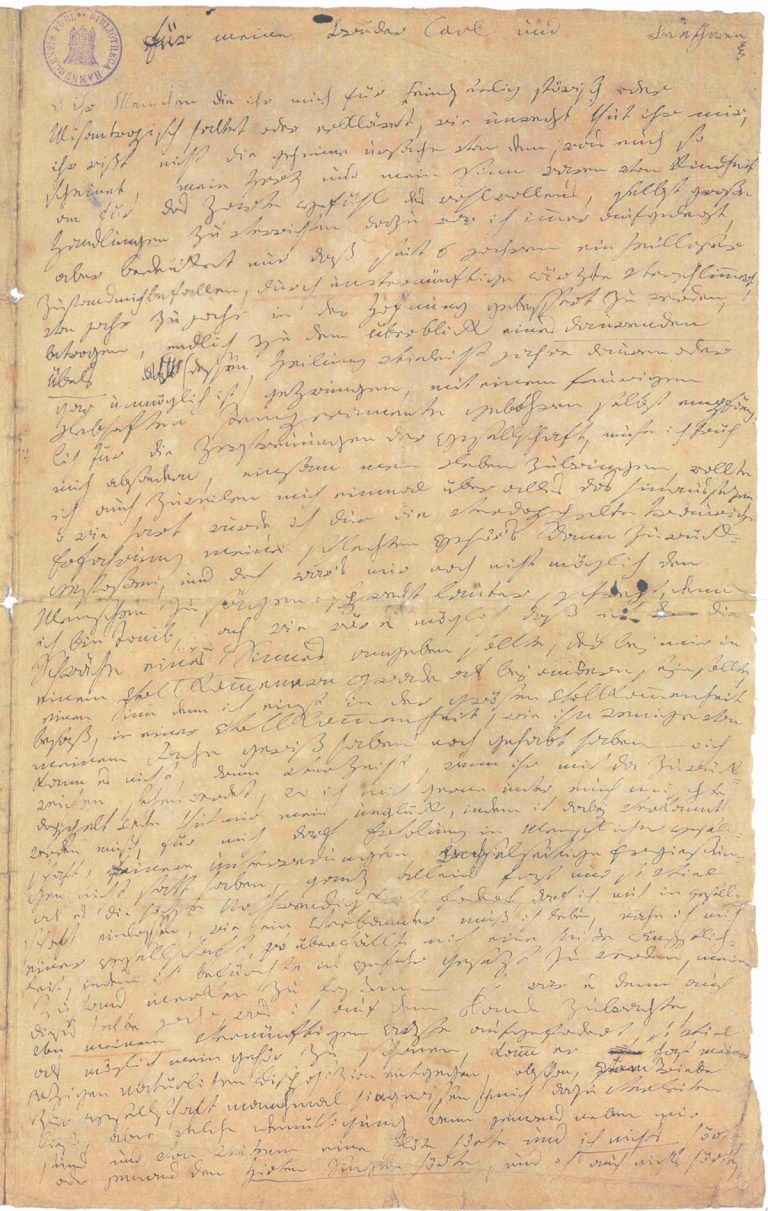 für meine Brüder Carl und Beethowen
o ihr Menschen die ihr mich für Feindseelig störisch oder
Misantropisch haltet oder erkläret, wie unrecht thut ihr mir,
ihr wißt nicht die geheime urßache von dem, was euch so
scheinet, mein Herz und mein Sinn waren von Kindheit
an für das Zarte gefühl des wohlwollens, selbst große
Handlungen zu verrichten dazu war ich imer aufgelegt,
aber bedenket nur daß seit 6 jahren ein heilloser
Zustand mich befallen, durch unvernünftige ärzte verschlimmert,
von jahr zu jahr in der Hofnung gebessert zu werden,
betrogen, endlich zu dem überblick eines daurenden
Übels (dessen Heilung vieleicht jahre dauren oder
gar unmöglich ist) gezwungen, mit einem feurigen
Lebhaften Temperamente gebohren selbst empfäng-
lich für die Zerstreuungen der gesellschaft, muste ich früh
mich absondern, einsam mein Leben zubringen, wollte
ich auch zuweilen mich einmal über alles das hinaussezen,
o wie hart wurde ich dur die verdoppelte traurige
Erfahrung meines schlechten Gehör's dann zurück-
gestoßen, und doch war's mir noch nicht möglich den
Menschen zu sagen: sprecht lauter, schrejt, denn
ich bin Taub, ach wie wär es möglich daß ich die
Schwäche eines Sinnes angeben sollte, der bej mir in
einem Vollkommenern grade als bej andern sejn sollte,
einen Sinn denn ich einst in der grösten Vollkommenheit
besaß, in einer Vollkommenheit, wie ihn wenige von
meinem Fache gewiß haben noch gehabt haben — o ich
kann es nicht, drum verzeiht, wenn ihr mich da zurück-
weichen sehen werdet, wo ich mich gerne unter euch mischte,
doppelt Wehe thut mir mein unglück, indem ich dabej verkannt
werden muß, für mich darf Erholung in Menschlicher gesell-
schaft, feinere unterredungen, Wechselseitige Ergießun-
gen nicht statt haben, ganz allein fast nur so viel
als es die höchste Nothwendigkeit fodert, darf ich mich in gesell-
schaft einlassen, wie ein Verbannter muß ich leben, nahe ich mich
einer gesellschaft, so überfällt mich eine heiße ängstlich-
keit, indem ich befürchte in gefahr gesezt zu werden, meinen
Zustand merken zu laßen — so war es denn auch
dieses halbe jahr, was ich auf dem Lande zubrachte,
von meinem vernünftigen Arzte aufgefodert, so viel
als möglich mein gehör zu schonen, kamm er fast meiner
jezigen natürlichen Disposizion entgegen, obschon, vom Triebe
zur gesellschaft manchmal hingerissen, ich mich dazu verleiten
ließ, aber welche demüthigung wenn jemand neben mir
stund und von weitem eine Flöte hörte und ich nichts hörte,
oder jemand den Hirten Singen hörte, und ich auch nichts hörte,